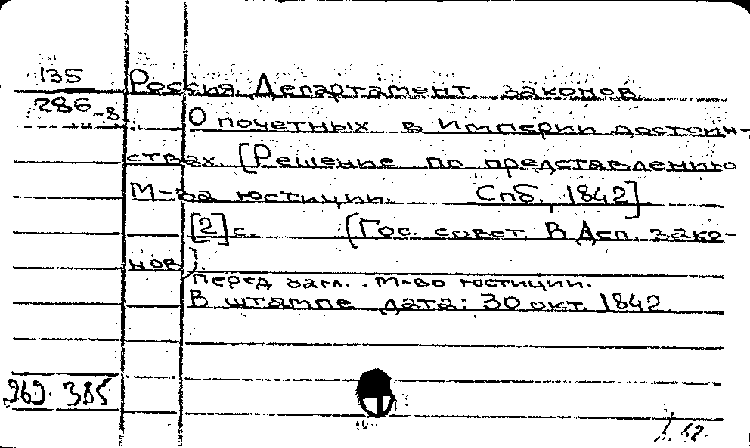 135 Россия. Департамент законов.
286-8 О почетных в Империи достоин-
ствах. [Решение по представлению
М-ва юстиции. Спб., 1842]
[2] с. (Гос. совет. В Деп. зако-
нов)
Перед загл.: М-во юстиции.
В штампе дата: 30 окт. 1842
969.385